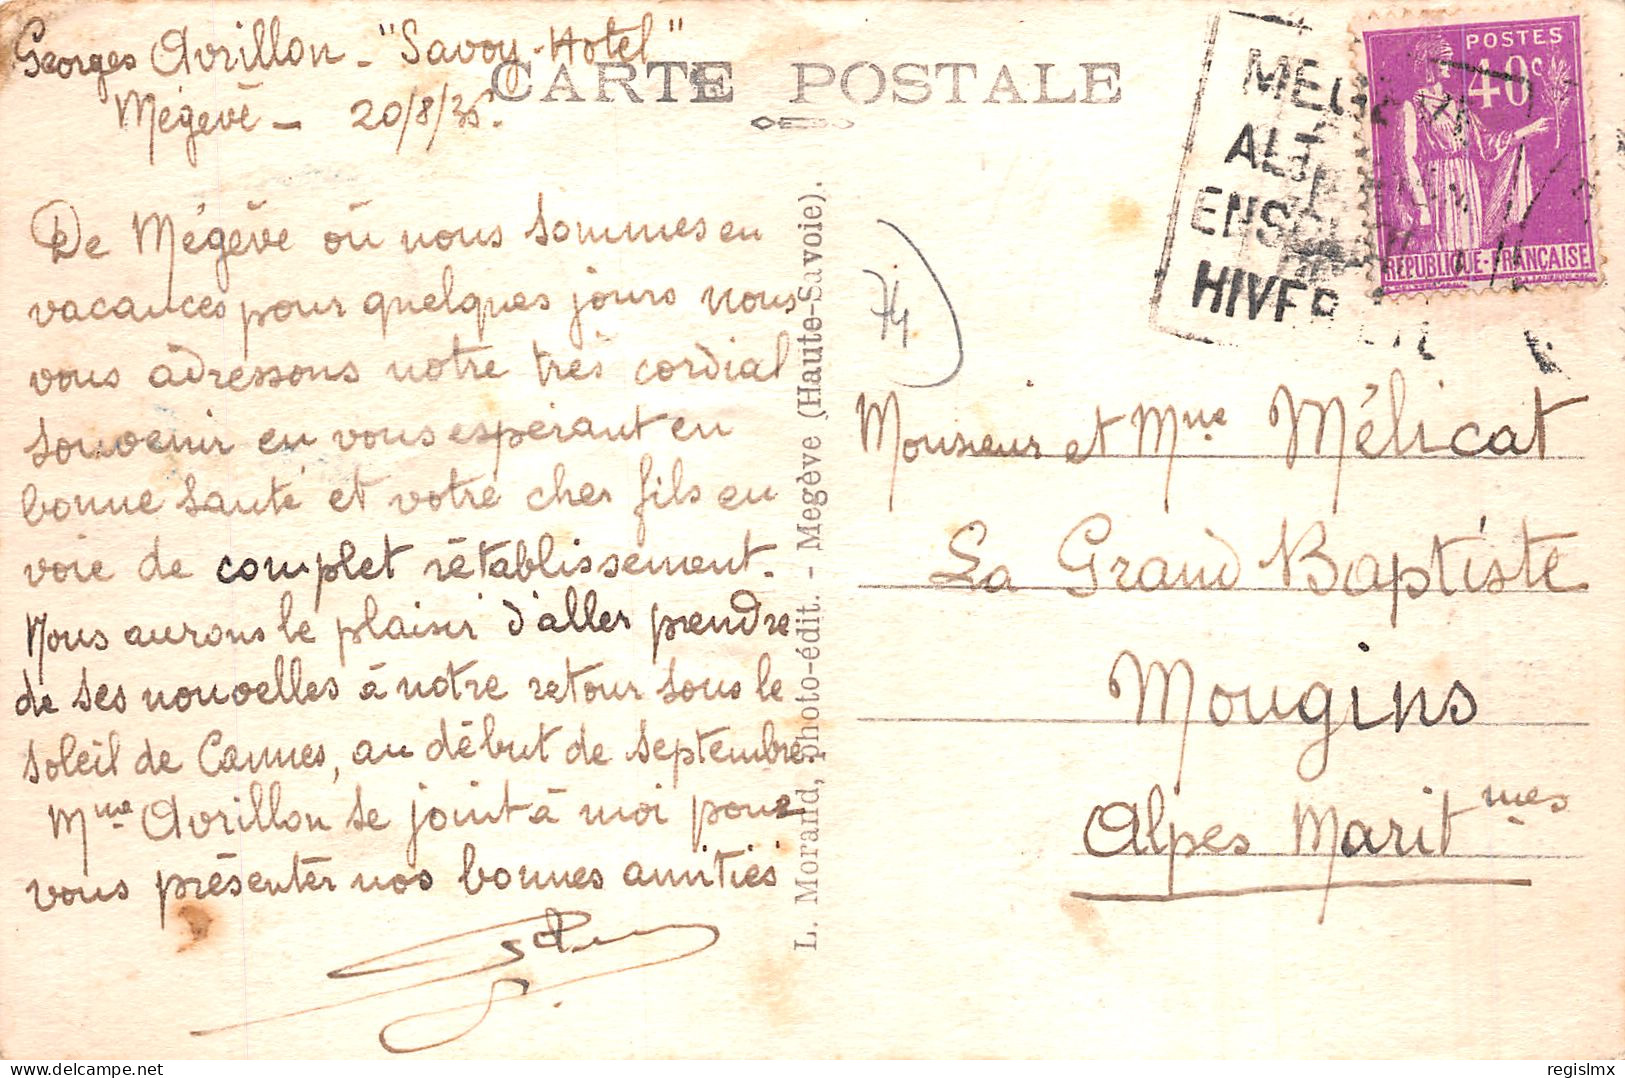 Georges Avrillon - "Savoy-Hotel"
Mégevé - 20/8/35.
CARTE POSTALE
De Mégève où nous sommes en
vacances pour quelques jours nous
vous adressons notre très cordial
souvenir en vous espérant en
bonne santé et votre cher fils en
voie de complet rétablissement.
Nous aurons le plaisir d'aller prendre
de ses nouvelles à notre retour sous le
soleil de Cannes, au début de septembre.
Mme Avrillon se joint à moi pour
vous présenter nos bonnes amitiés
L. Morand, photo-édit. - Megève (Haute-Savoie).
74
MEGEVE
ALT
ENSOL
HIVER
POSTES
40c
REPUBLIQUE-FRANÇAISE
Monsieur et Mme Mélicat
La Grand Baptiste
Mougins
Alpes Maritmes
delcampe.net
regislmx